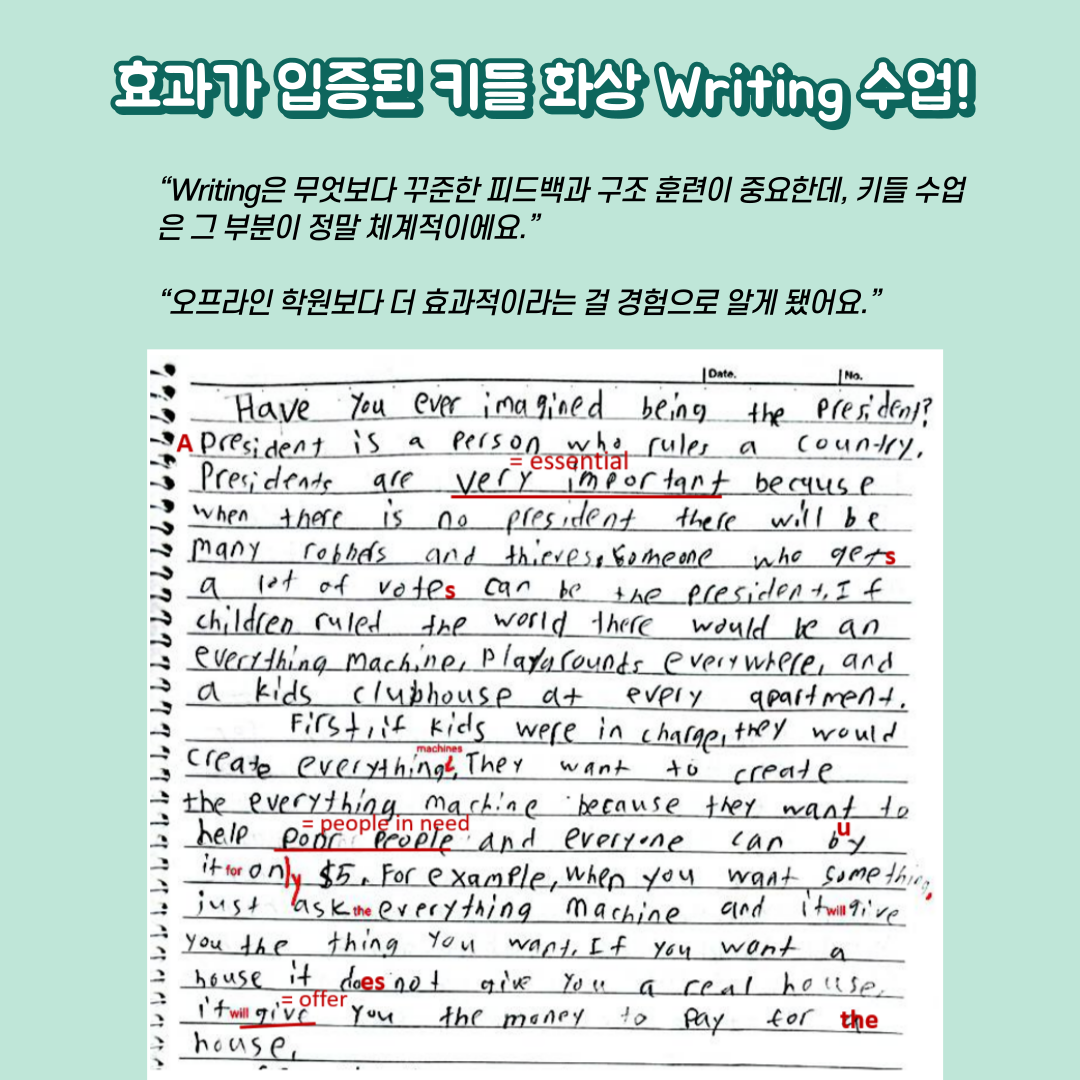 효과가 입증된 키들 화상 Writing 수업!
“Writing은 무엇보다 꾸준한 피드백과 구조 훈련이 중요한데, 키들 수업
은 그 부분이 정말 체계적이에요.”
“오프라인 학원보다 더 효과적이라는 걸 경험으로 알게 됐어요.”
Date. No.
Have you ever imagined being the president?
A president is a person who rules a country.
= essential
Presidents are very important because
when there is no president there will be
many robbers and thieves. Someone who gets
a lot of votes can be the president. If
children ruled the world there would be an
everything machine, playgrounds everywhere, and
a kids clubhouse at every apartment.
First, if kids were in charge, they would
machines
create everything. They want to create
the everything machine because they want to
= people in need
help poor people and everyone can buy
it for only $5. For example, when you want something,
just ask the everything machine and it will give
you the thing you want. If you want a
house it does not give you a real house.
= offer
it will give you the money to pay for the
house.